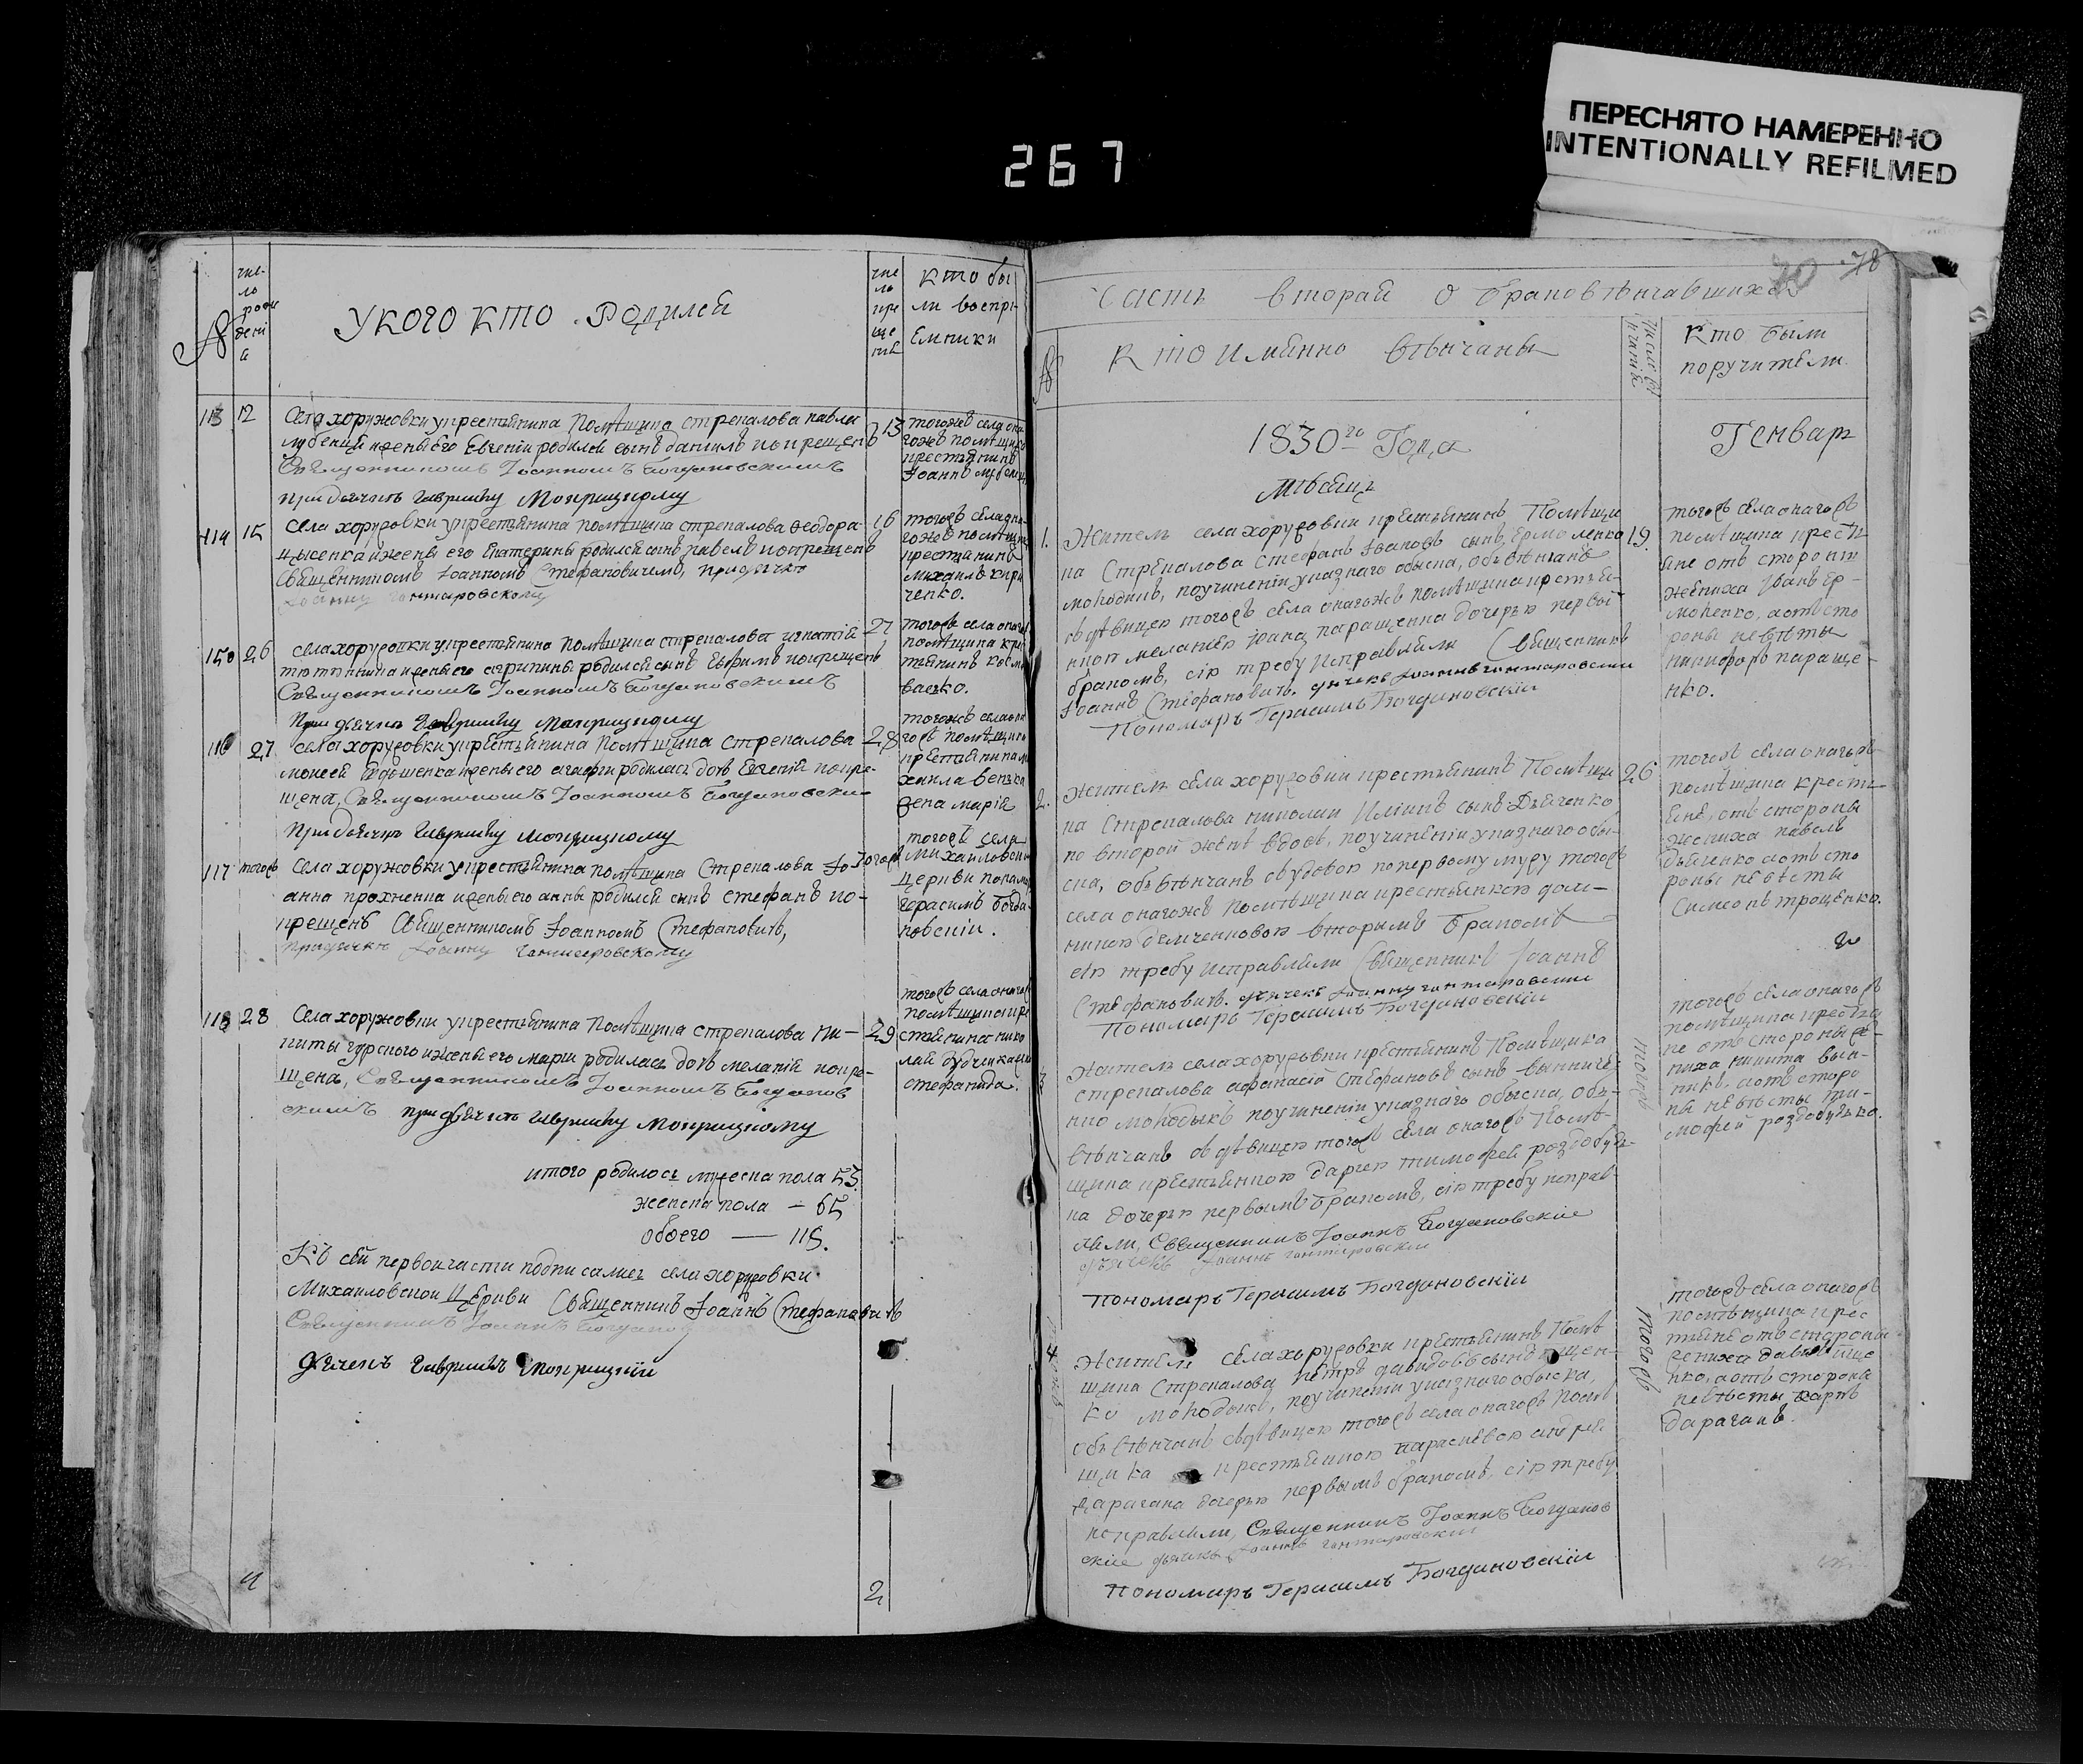 ПЕРЕСНЯТО НАМЕРЕННО
INTENTIONALLY REFILMED
267
№
чис-
ло
рож
дені
я
У КОГО КТО РОДИЛСЯ
чис
ло
кре
ще
нія
Кто бы
ли воспрі
Емники
113 12
Села хоружовки укрестьянина Помѣщика стрекалова павла
и жены его Евгеніи родился сынъ данилъ и окрещенъ 13
Священникомъ Іоанномъ Богдановскимъ
При дьячкѣ Гавриилу Мокрицкому
тогожъ села она
гожъ помѣщика
крестьянинъ
Іоаннъ
114 15
села хоружовки укрестьянина помѣщика стрекалова Ѳеодора
и жены его Екатерины родился сынъ павелъ и окрещенъ 16
Священникомъ Іоанномъ Стефановичемъ, при дьячкѣ
Іоанну гонтаровскому
тогожъ села она
гожъ помѣщика
крестьянинъ
михаилъ кири
ченко.
26
села хоружовки укрестьянина помѣщика стрекалова игнатія
и жены его агрипины родился сынъ Ефимъ и окрещенъ 27
Священникомъ Іоанномъ Богдановскимъ
При дьячкѣ Гавриилу Мокрицкому
тогожъ села онаго
помѣщика кре
стьянинъ косма
ваенко.
116 27
села хоружовки укрестьянина Помѣщика стрекалова 28
моисея и жены его агафіи родилась дочь Евгенія и окре-
щена, Священникомъ Іоанномъ Богдановски
При дьячкѣ Гавриилу Мокрицкому
тогожъ села она
гожъ помѣщика
крестьянина ми
хаила
жена марія
117 тогожъ
Села хоружовки укрестьянина помѣщика Стрекалова Іо- тогожъ
анна прохненка и жены его анны родился сынъ стефанъ и о-
крещенъ Священникомъ Іоанномъ Стефановичъ,
при дьячкѣ Іоанну гонтаровскому
тогожъ села
Михайловской
Церкви понамарь
герасимъ богда
новскіи.
118 28
Села хоружовки укрестьянина Помѣщика стрекалова ни- 29
киты гурского и жены его маріи родилась дочь меланія и окре-
щена, Священникомъ Іоанномъ Богданов
скимъ при дьячкѣ Гавриилу Мокрицкому
тогожъ села онагожъ
помѣщика кре
стьянина нико
лая
стефанида.
итого родилось мужеска пола 53.
женска пола — 65
обоего — 118.
Къ сей первой части подписались села хоружовки
Михайловской Церкви Священникъ Іоаннъ Стефановичъ
Священникъ Іоаннъ Богданов
дьячекъ Гавриилъ Мокрицкіи
2
70 78
Часть вторая о браковѣнчавшихся
№
Кто имянно вѣнчаны
Кто были
поручители
1830го Года
Мѣсяцъ
Генварь
1. Житель села хоружовки крестьянинъ Помѣщи 19.
ка Стрекалова стефанъ Івановъ сынъ Ермоленко
молодикъ, поучиненіи указнаго обыска, обвѣнчанъ
съ дѣвицею тогожъ села онагожъ помѣщика крестья-
нкою меланіею паращенка дочерью первы
бракомъ, сію требу Исправляли Священникъ
Іоаннъ Стефановичъ. дьячекъ Іоаннъ гонтаровскіи
Пономарь Герасимъ Богдановскіи
тогожъ села онагожъ
помѣщика крестья
не отъ стороны
жениха Иванъ Ер-
моленко, а отъ сто
роны невѣсты
никифоръ параще-
нко.
2. Житель села хоружовки крестьянинъ Помѣщи 26
ка Стрекалова николаи Ильинъ сынъ Дьяченко
по второй женѣ вдовъ, поучиненіи указнаго обы-
ска, обвѣнчанъ съ вдовою по первому мужу тогожъ
села онагожъ помѣщика крестьянкою дом-
никою вторымъ бракомъ
сію требу исправляли Священникъ Іоаннъ
Стефановичъ. дьячекъ Іоаннъ гонтаровскіи
Пономарь Герасимъ Богдановскіи
тогожъ села онагожъ
помѣщика крестья
яне, отъ стороны
жениха павелъ
дьяченко а отъ сто
роны невѣсты
Симеонъ троценко.
3 Житель села хоружовки крестьянинъ Помѣщика тогожъ
стрекалова афанасій стефановъ сынъ
молодыкъ поучиненіи указнаго обыска, объ-
вѣнчанъ съ дѣвицею тогожъ села онагожъ Помѣ-
щика крестьянкою даріею тимофея
ка дочерью первымъ бракомъ, сію требу исправ-
ляли, Священникъ Іоаннъ Богдановскіе
дьячекъ Іоаннъ гонтаровскіи
Пономарь Герасимъ Богдановскіи
тогожъ села онагожъ
помѣщика крестья
не отъ стороны же-
ниха никита вын-
никъ, а отъ сторо
ны невѣсты ти-
мофеи
4 Житель села хоружовки крестьянинъ Помѣ тогожъ
щика Стрекалова петръ давидовъ сынъ
молодыкъ, поучиненіи указнаго обыска,
обвѣнчанъ съ дѣвицею тогожъ села онагожъ помѣ
щика крестьянкою параскевою андрея
дарагана дочерью первымъ бракомъ, сію требу
исправляли, Священникъ Іоаннъ Богданов
скіе дьячекъ Іоаннъ гонтаровскіи
Пономарь Герасимъ Богдановскіи
тогожъ села онагожъ
помѣщика крес
тьяне отъ стороны
жениха давидъ
нко, а отъ стороны
невѣсты карпъ
дараганъ.